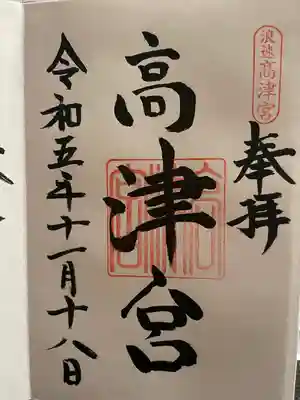 浪速高津宮
奉拝
高津宮
令和五年十一月十八日